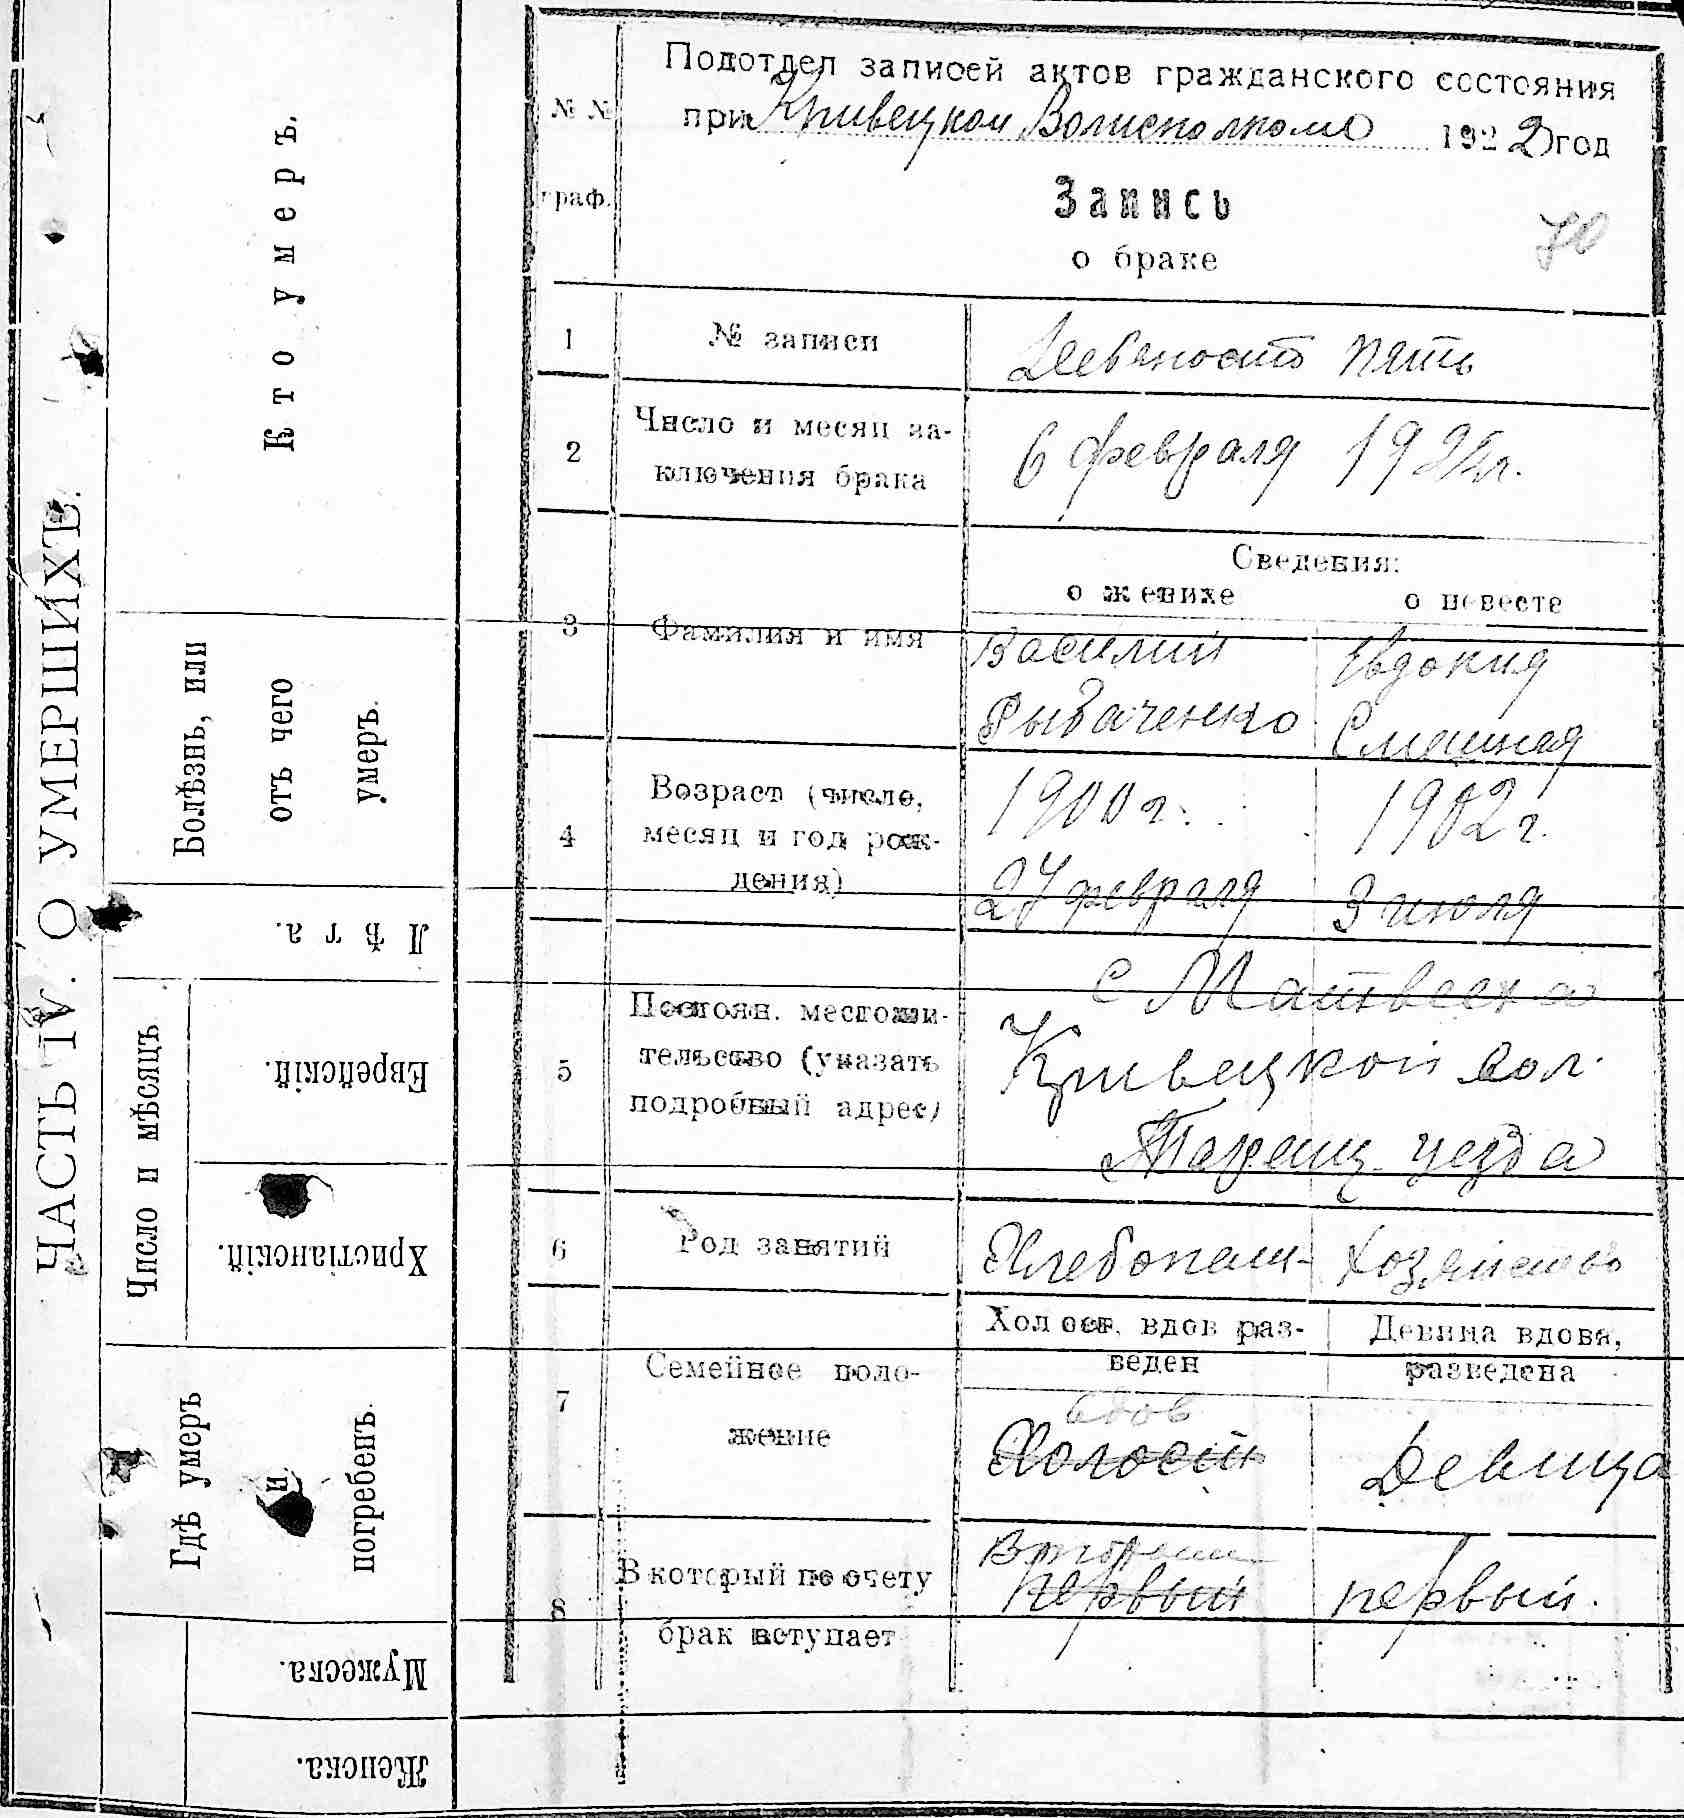 ЧАСТЬ IV. О УМЕРШИХЪ.
Кто умеръ.
Болѣзнь, или
отъ чего
умеръ.
Лѣта.
Число и мѣсяцъ
Еврейскій.
Христіанскій.
Гдѣ умеръ
и
погребенъ.
Мужеска.
Женска.
№№
граф.
Подотдел записей актов гражданского состояния
при Кривецком Волисполкоме 1922 год
Запись
о браке
70
1 № записи Девяносто пять
2 Число и месяц за-
ключения брака
6 февраля 192 г.
Сведения:
о женихе о невесте
3 Фамилия и имя
Василий Евдокия
Рыбаченко
4 Возраст (число,
месяц и год рож-
дения)
1900 г. 1902 г.
27 февраля 3 июля
5 Постоян. местожи-
тельство (указать
подробный адрес)
с Матвеевка
Кривецкой вол.
Таращ. уезда
6 Род занятий Хлебопаш- Хозяйство
7 Семейное поло-
жение
Холост, вдов раз-
веден
Девица вдова,
разведена
вдов
Холост Девица
8 В который по счету
брак вступает
Вторый
первый первый.